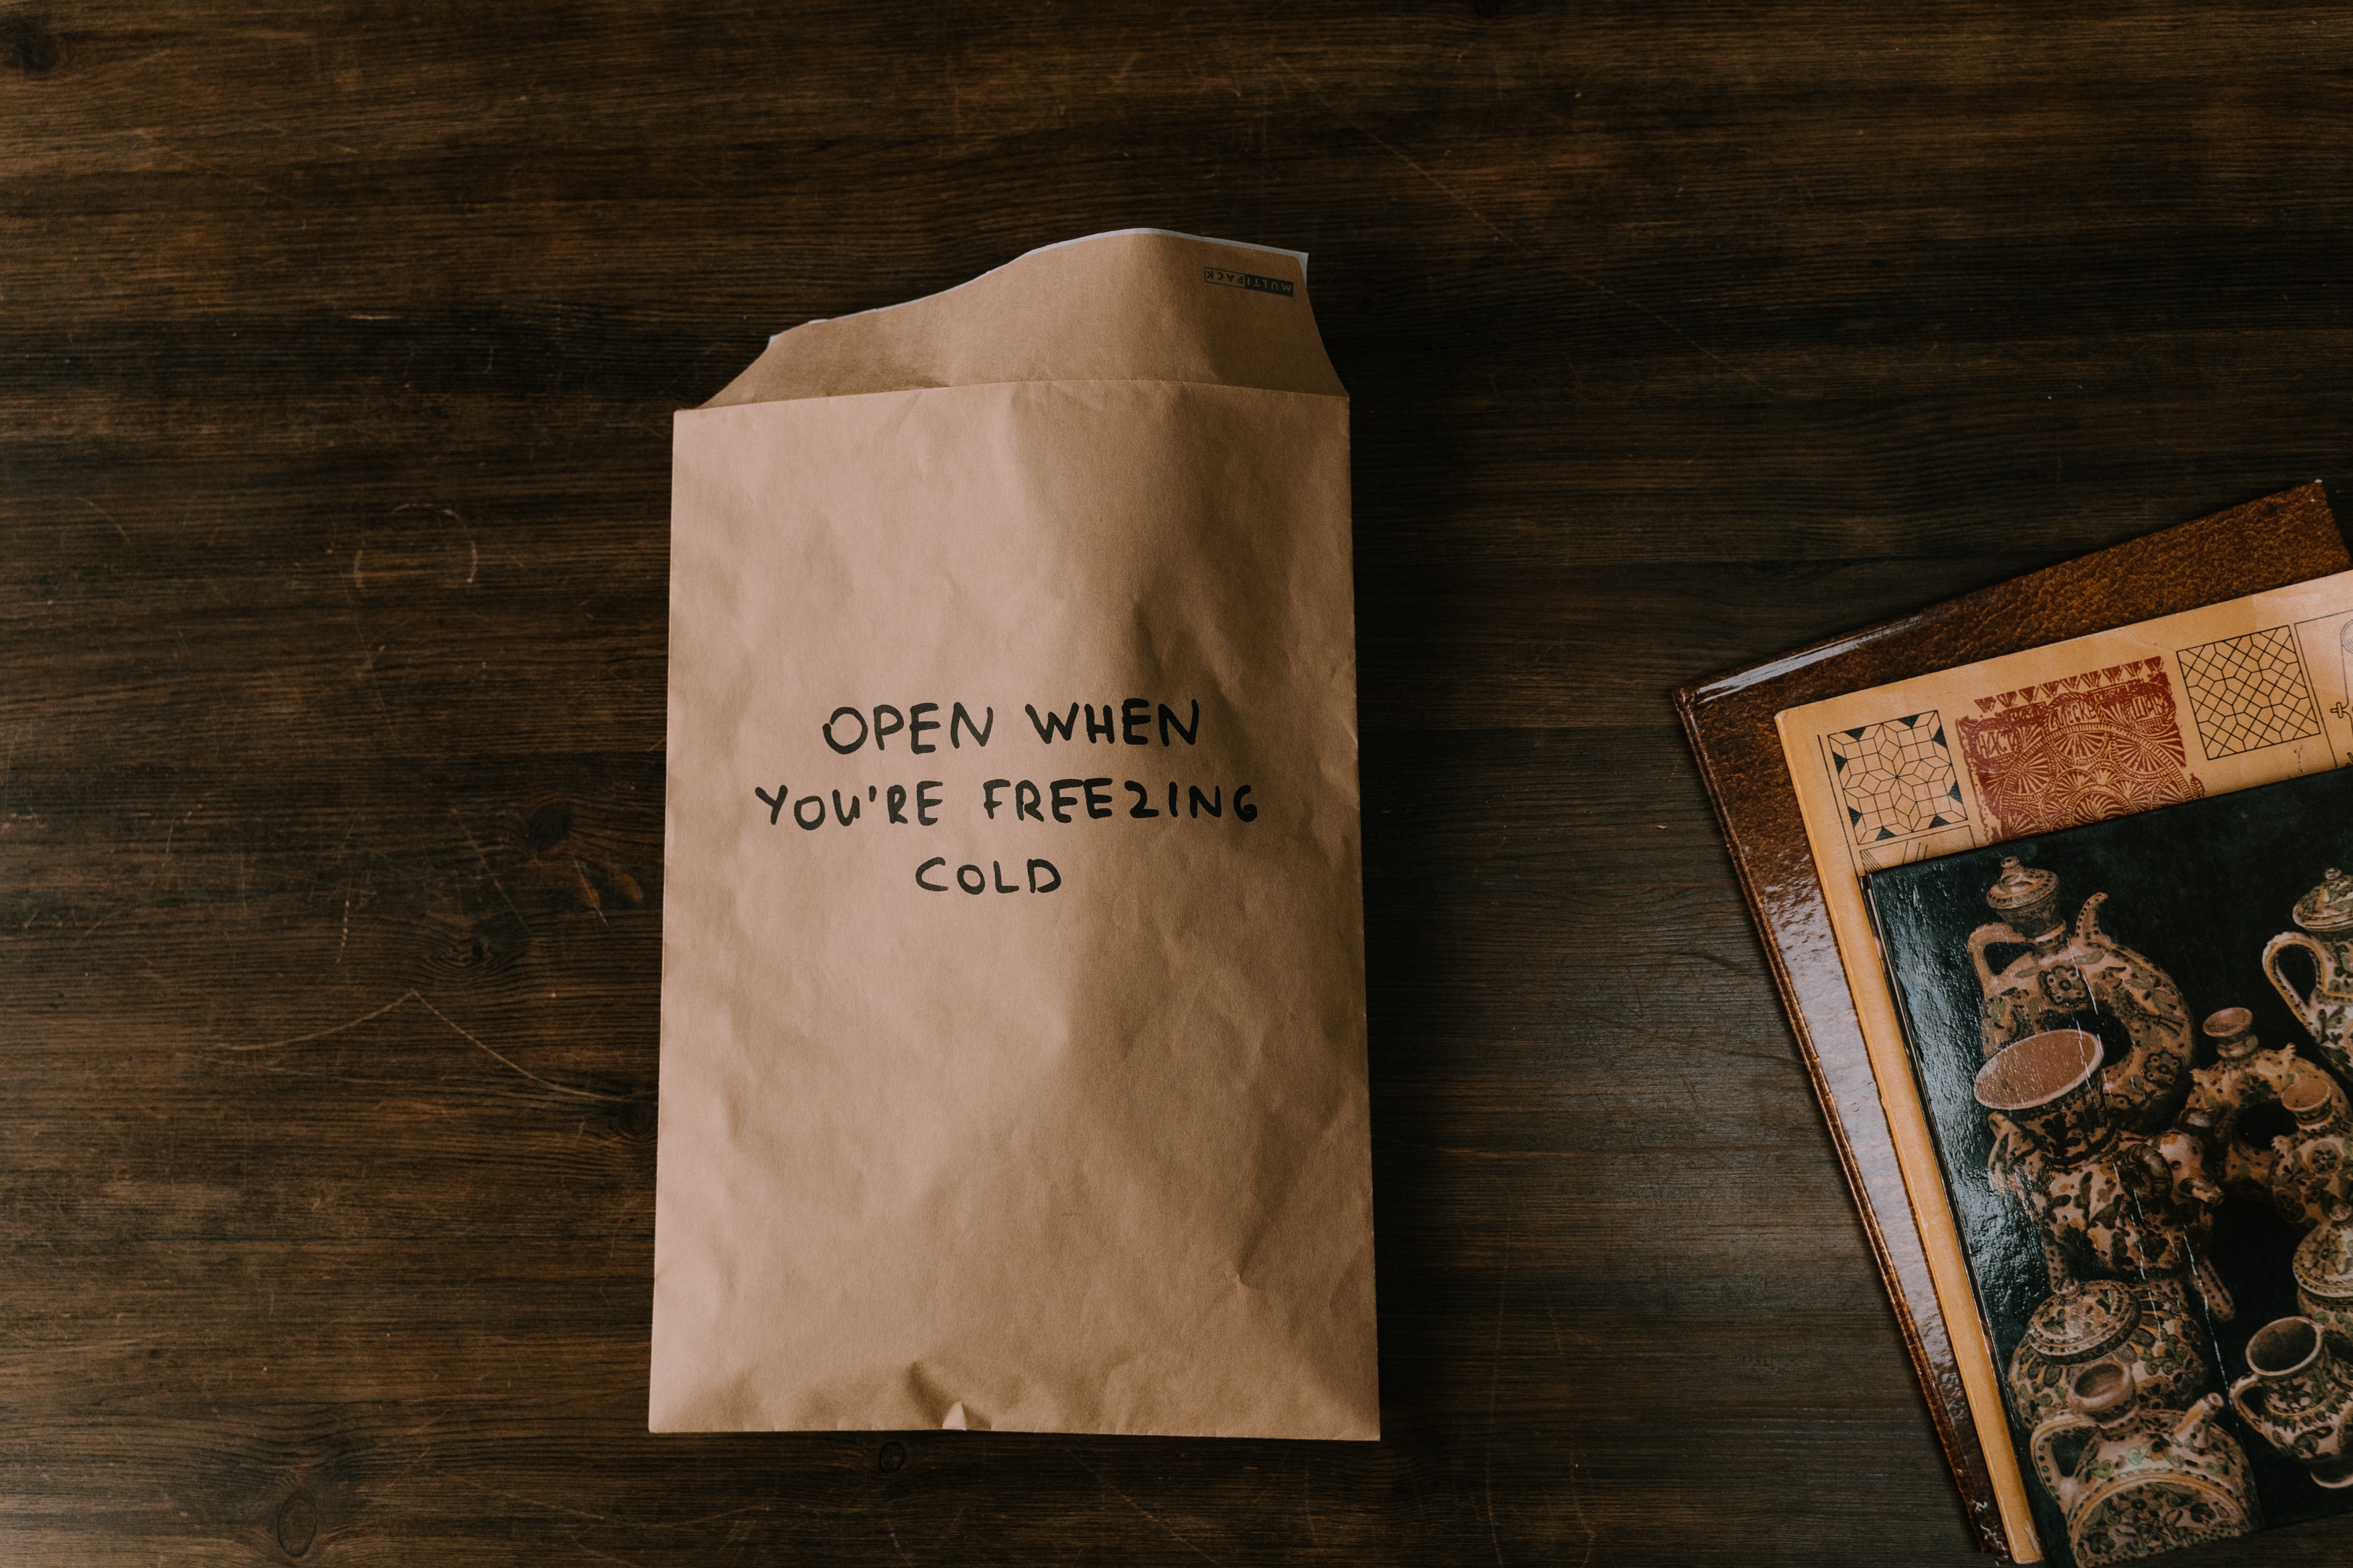 MULTIPACK
OPEN WHEN
YOU'RE FREEZING
COLD